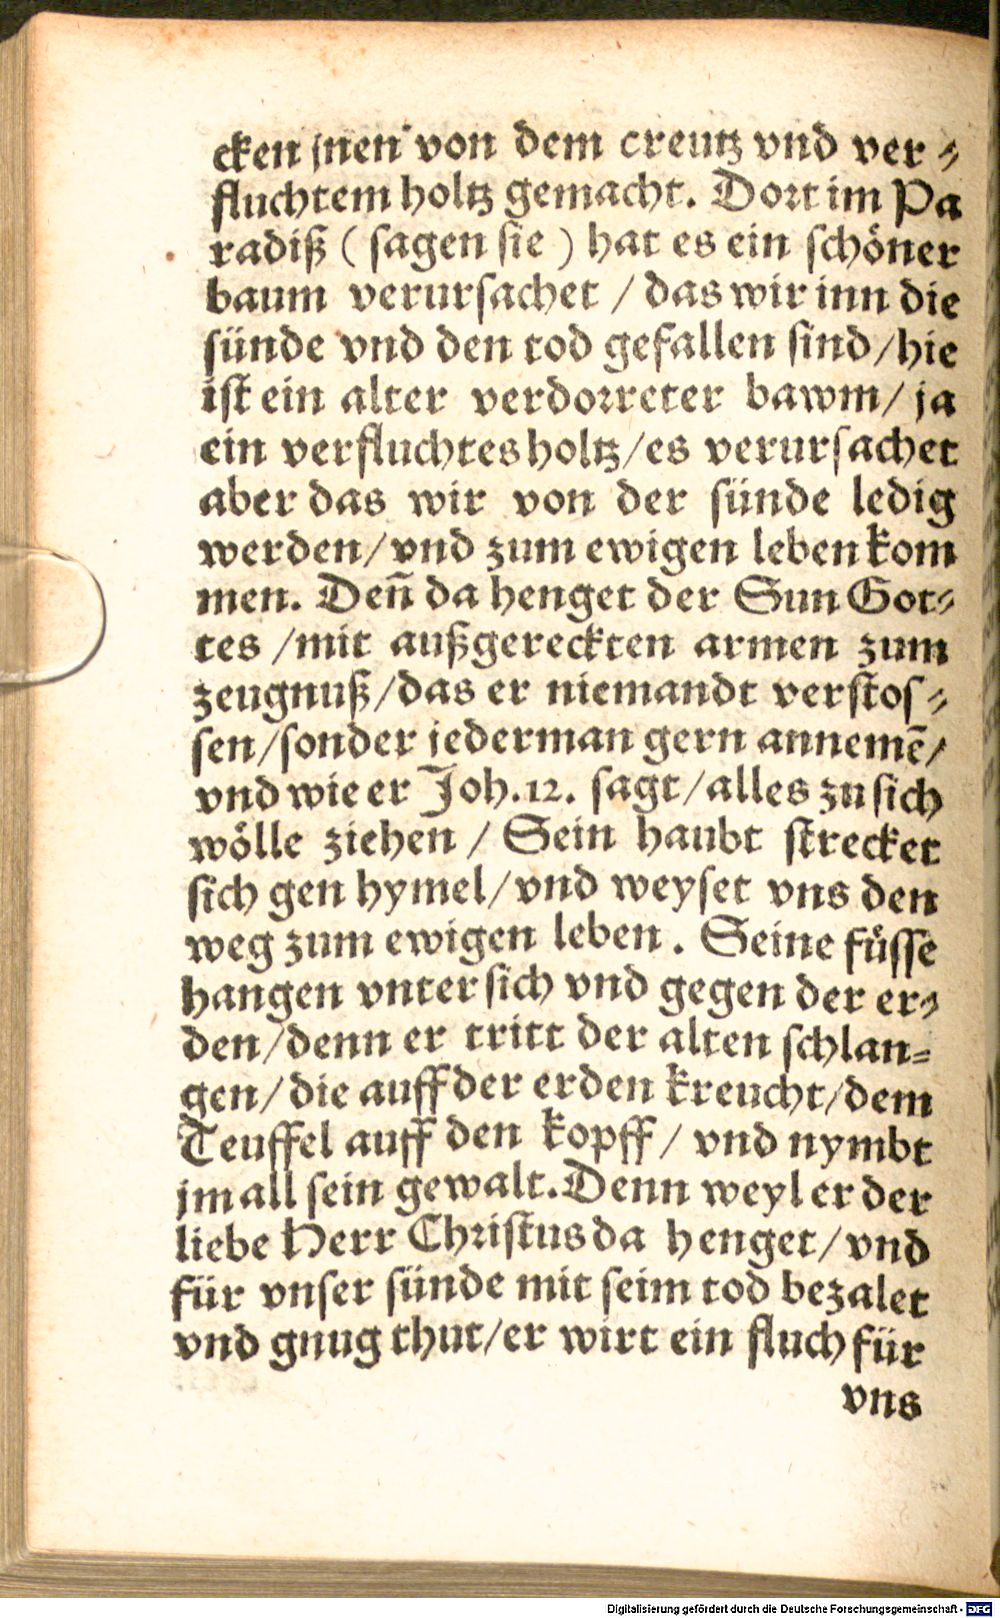 cken jnen von dem creutz vnd ver⸗
fluchtem holtz gemacht. Dort im Pa
radiß ( sagen sie ) hat es ein schöner
baum verursachet / das wir inn die
sünde vnd den tod gefallen sind/hie
ist ein alter verdorreter bawm/ ja
ein verfluchtes holtz/es verursachet
aber das wir von der sünde ledig
werden/vnd zum ewigen leben kom
men. Deñ da henget der Sun Got⸗
tes /mit außgereckten armen zum
zeugnuß/das er niemandt verstos⸗
sen/sonder jederman gern annemē/
vnd wie er Joh.12. sagt/alles zu sich
wölle ziehen / Sein haubt strecket
sich gen hymel/vnd weyset vns den
weg zum ewigen leben. Seine füsse
hangen vnter sich vnd gegen der er⸗
den/denn er tritt der alten schlan⸗
gen/die auff der erden kreucht/dem
Teuffel auff den kopff/ vnd nymbt
jm all sein gewalt. Denn weyl er der
liebe Herr Christus da henget/vnd
für vnser sünde mit seim tod bezalet
vnd gnug thut/er wirt ein fluch für
vns
Digitalisierung gefördert durch die Deutsche Forschungsgemeinschaft - DFG